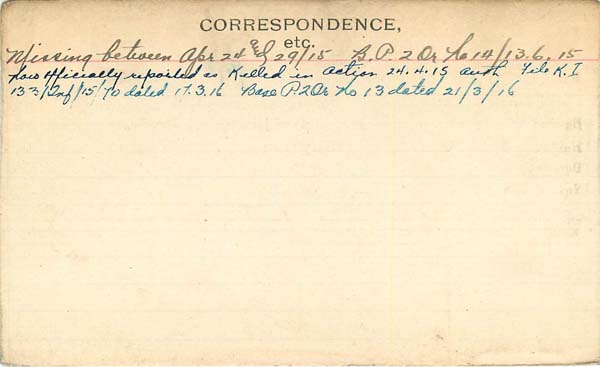 CORRESPONDENCE,
etc.
Missing between Apr 24 & 29/15 B. P. 2 Or No 14/13.6.15
Now officially reported as Killed in action 24.4.15 auth File K. I
133/Inf/15/70 dated 17.3.16 Base P.2 Or No 13 dated 21/3/16